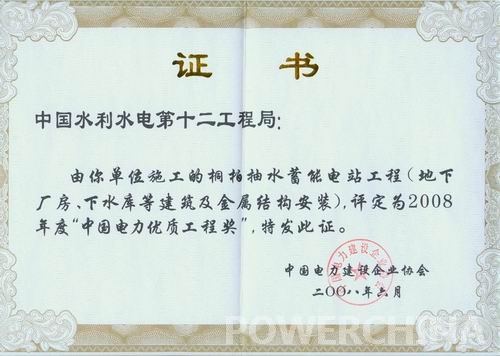 证书
中国水利水电第十二工程局:
由你单位施工的桐柏抽水蓄能电站工程(地下
厂房、下水库等建筑及金属结构安装),评定为2008
年度“中国电力优质工程奖”,特发此证。
中国电力建设企业协会
二〇〇八年六月
POWERCHINA